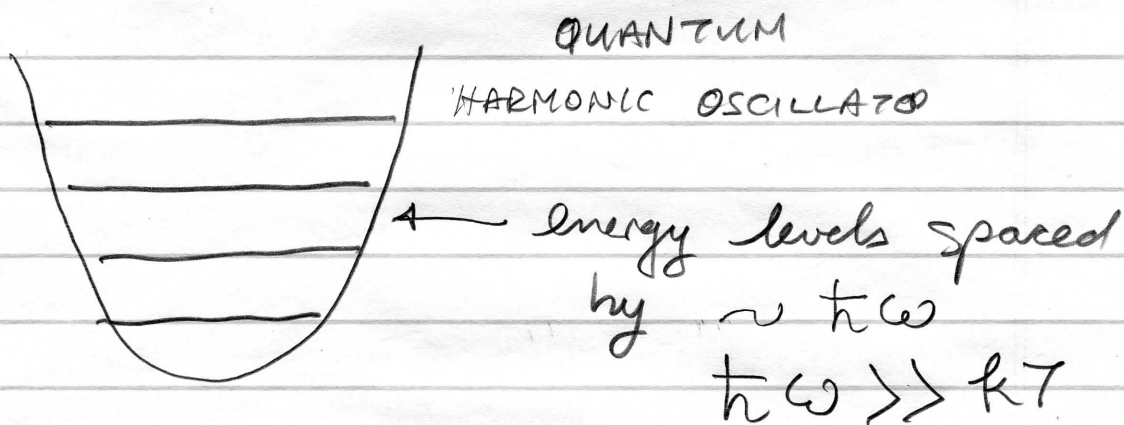 QUANTUM
HARMONIC OSCILLATO
← energy levels spaced
by ~ ħω
ħω >> kT